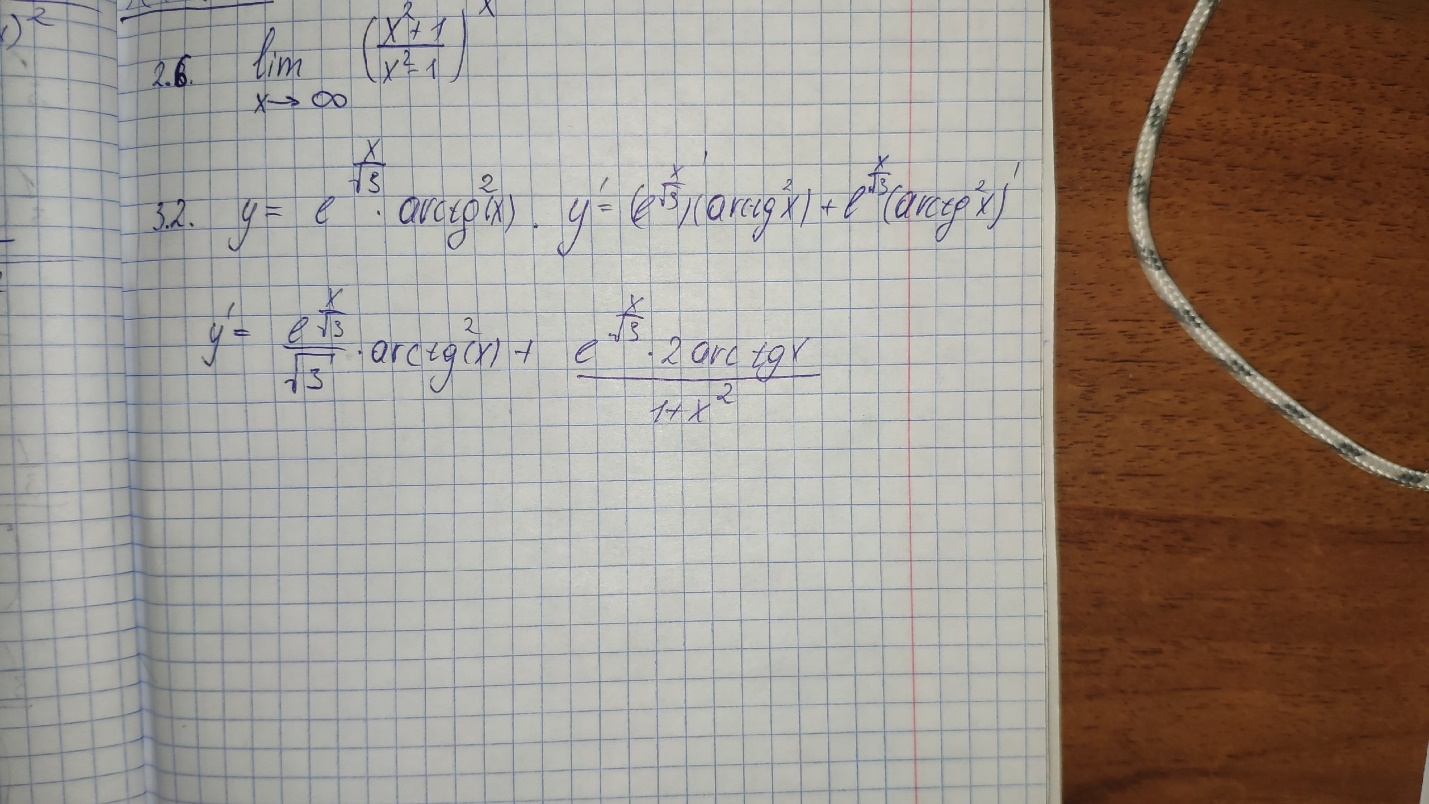 x)²
2.6. lim x→∞ ((x²+1)/(x²-1))^x
3.2. y = e^(x/√3) · arctg²(x). y' = (e^(x/√3))'(arctg²x) + e^(x/√3)(arctg²x)'
y' = e^(x/√3)/√3 · arctg²(x) + (e^(x/√3) · 2 arctgx)/(1+x²)